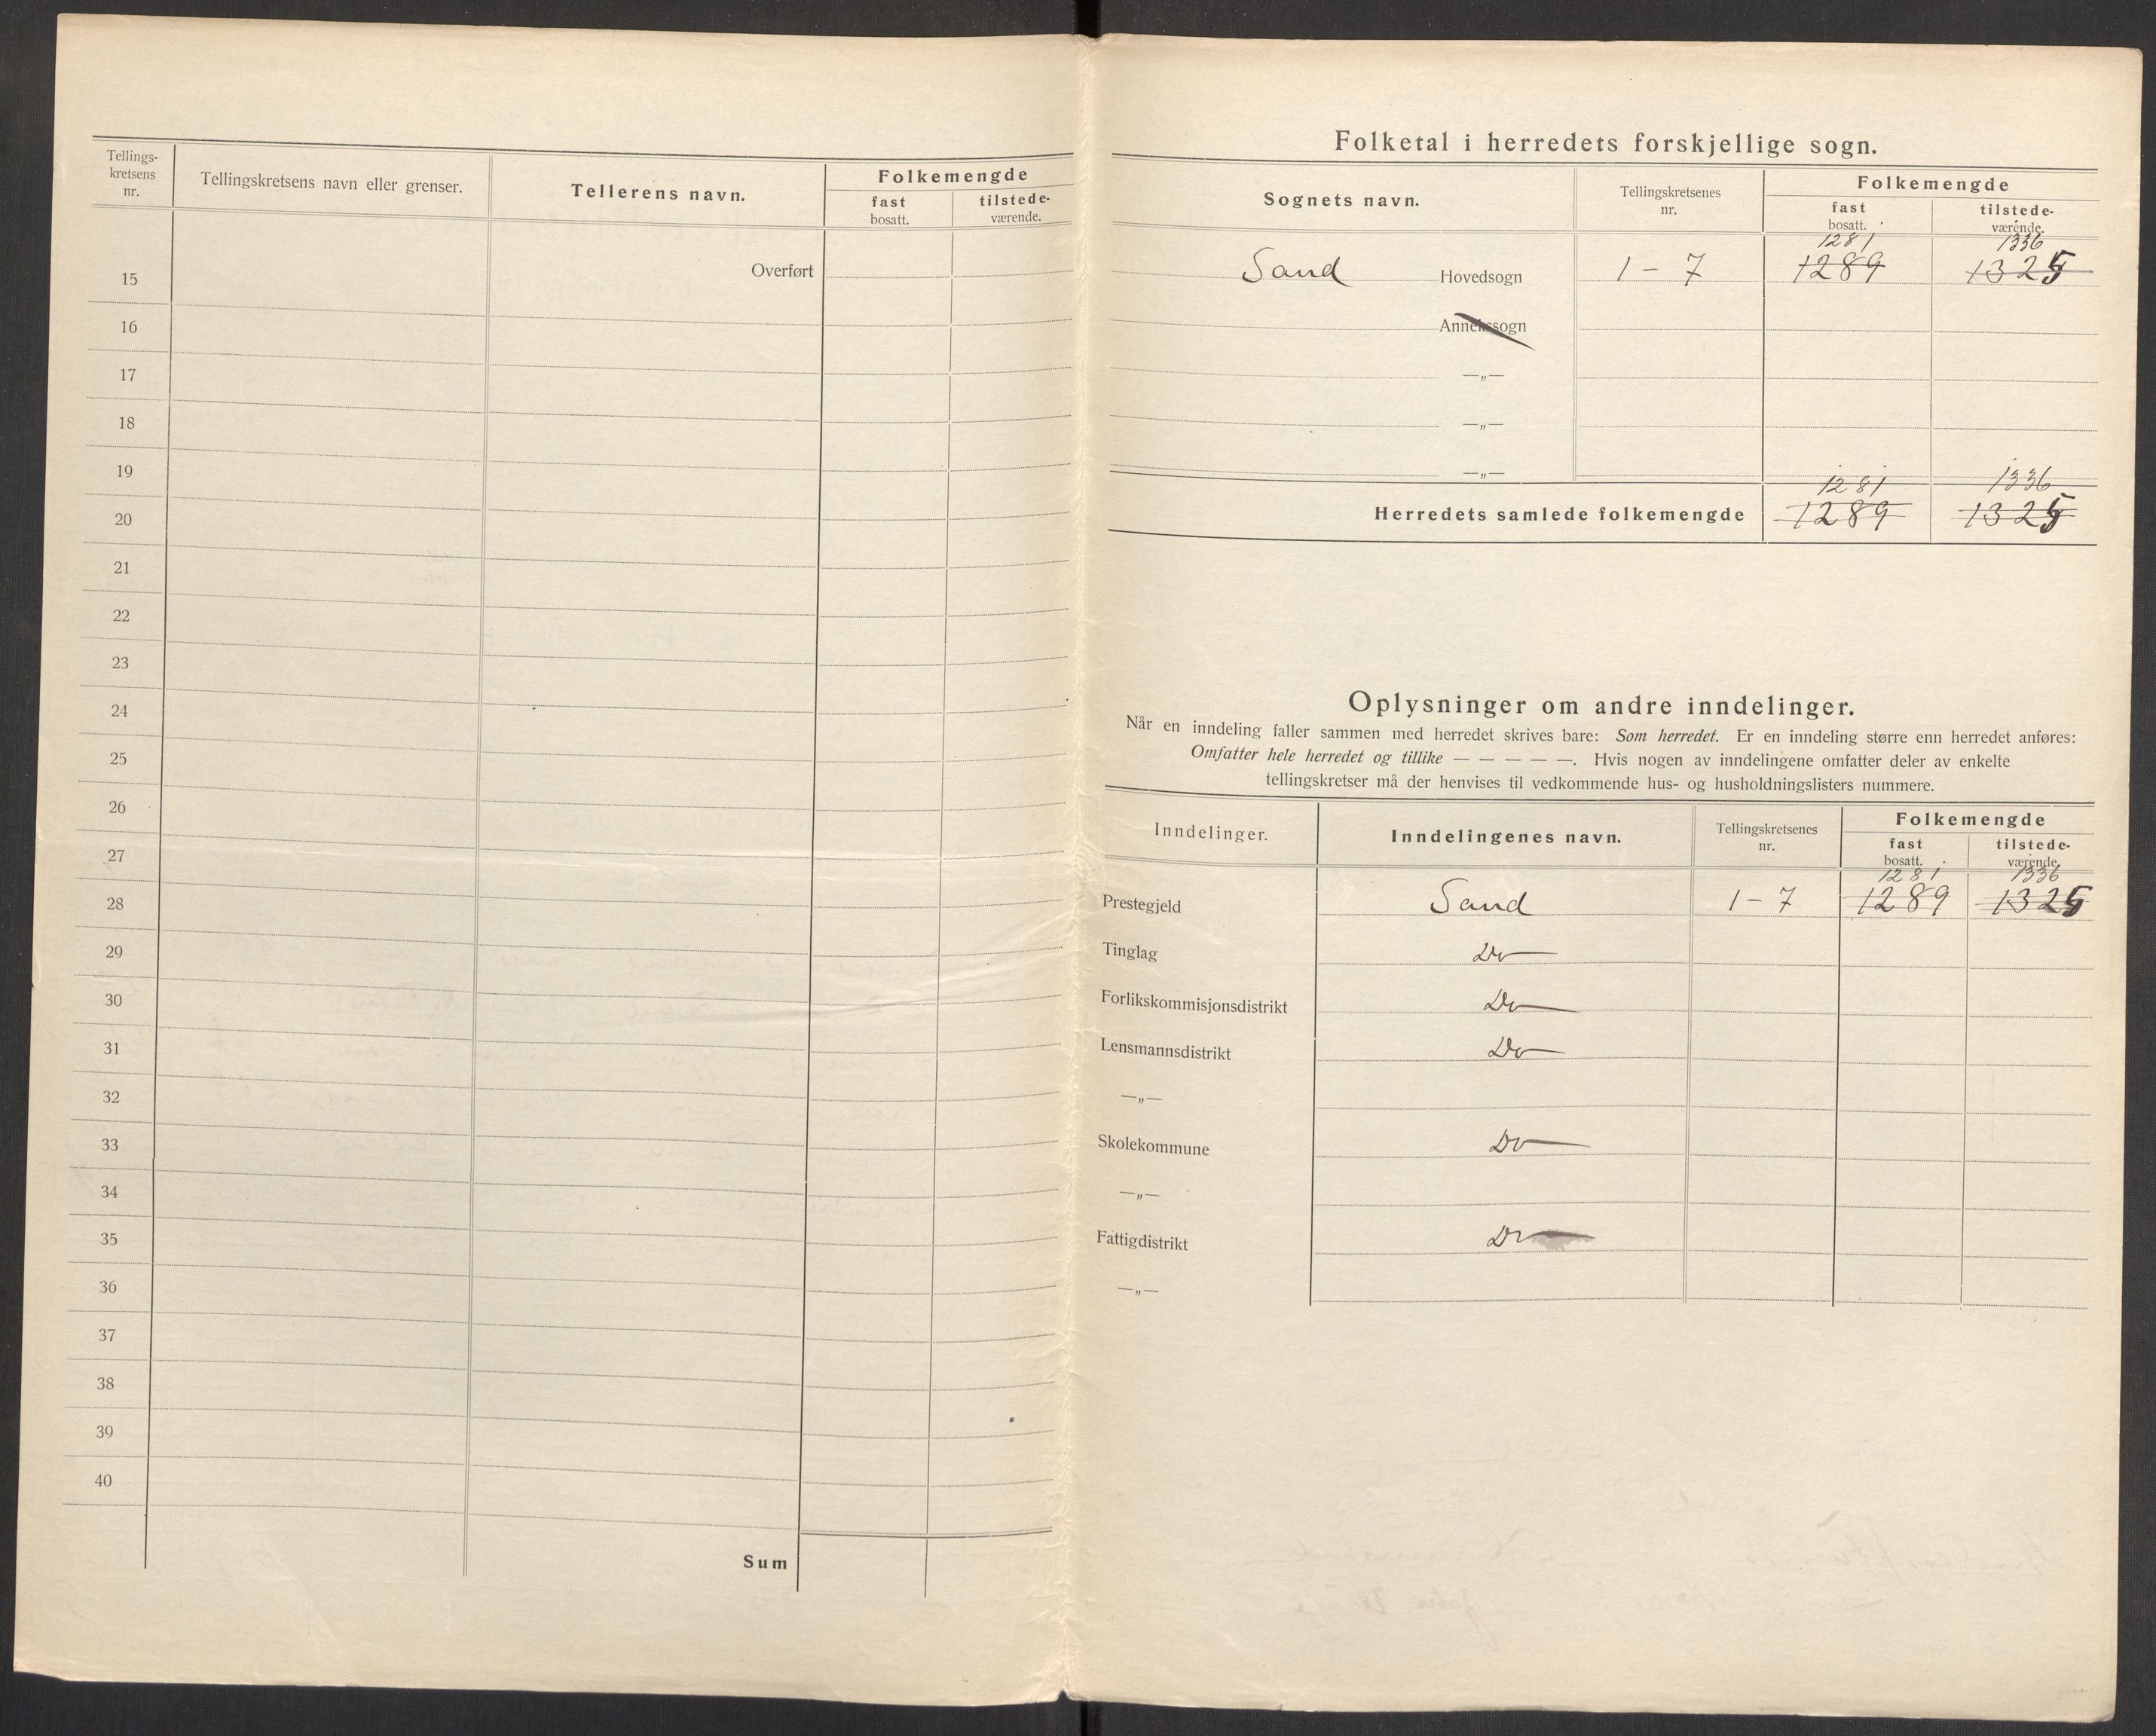 Tellings-
kretsens
nr.
Tellingskretsens navn eller grenser.
Tellerens navn.
Folkemengde
fast
bosatt.
tilstede-
værende.
Overført
15
16
17
18
19
20
21
22
23
24
25
26
27
28
29
30
31
32
33
34
35
36
37
38
39
40
Sum
Folketal i herredets forskjellige sogn.
Sognets navn.
Tellingskretsenes
nr.
Folkemengde
fast
bosatt.
tilstede-
værende.
1281 1336
Sand Hovedsogn 1-7 1289 1325
Annekssogn
—„—
—„—
—„—
1281 1336
Herredets samlede folkemengde 1289 1325
Oplysninger om andre inndelinger.
Når en inndeling faller sammen med herredet skrives bare: Som herredet. Er en inndeling større enn herredet anføres:
Omfatter hele herredet og tillike — — — — —. Hvis nogen av inndelingene omfatter deler av enkelte
tellingskretser må der henvises til vedkommende hus- og husholdningslisters nummere.
Inndelinger.
Inndelingenes navn.
Tellingskretsenes
nr.
Folkemengde
fast
bosatt.
tilstede-
værende.
1281 1336
Prestegjeld Sand 1-7 1289 1325
Tinglag Do
Forlikskommisjonsdistrikt Do
Lensmannsdistrikt Do
—„—
Skolekommune Do
—„—
Fattigdistrikt Do
—„—